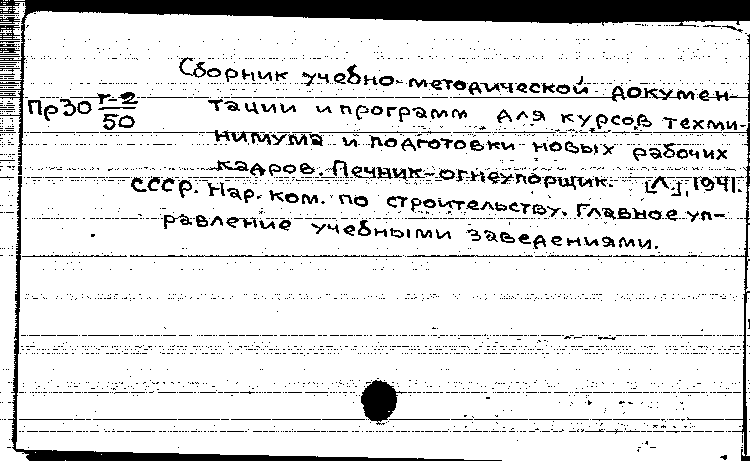 Сборник учебно-методической докумен-
Пр30 г-2/50 тации и программ для курсов техми-
нимума и подготовки новых рабочих
кадров. Печник-огнеупорщик. [Л.], 1941.
СССР. Нар. ком. по строительству. Главное уп-
равление учебными заведениями.